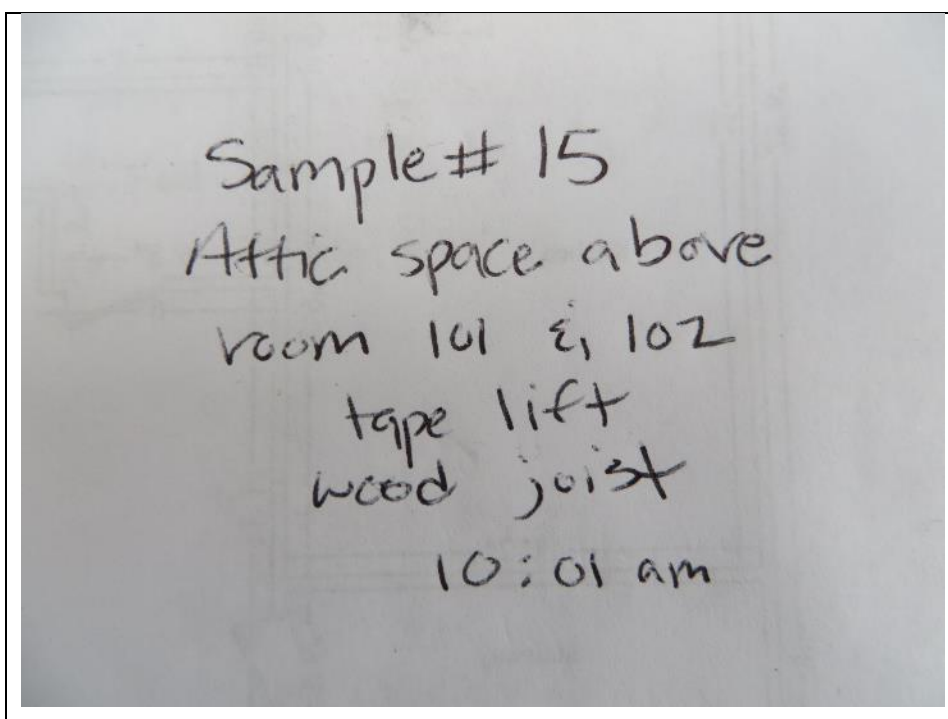 Sample# 15
Attic space above
room 101 & 102
tape lift
wood joist
10:01 am